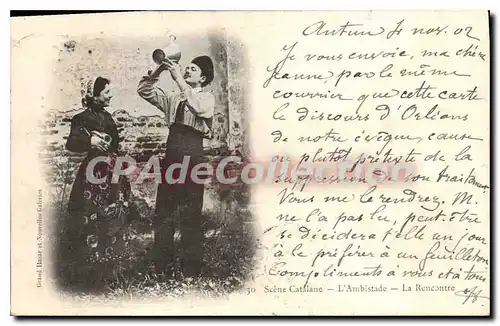 Autun 4 nov. 02
Je vous envoie, ma chère
Jeanne, par le même
courrier que cette carte
le discours d'Orléans
de notre évêque, cause
ou plutôt prétexte de la
suppression de son traitement
Vous me le rendrez. M.
ne l'a pas lu, peut-être
se décidera-t-elle un jour
à le préférer à un feuilleton
Compliments à vous et à tous
CPARAMA
30 Scène Catalane — L'Ambistade — La Rencontre
Grand Bazar et Nouvelles Galeries